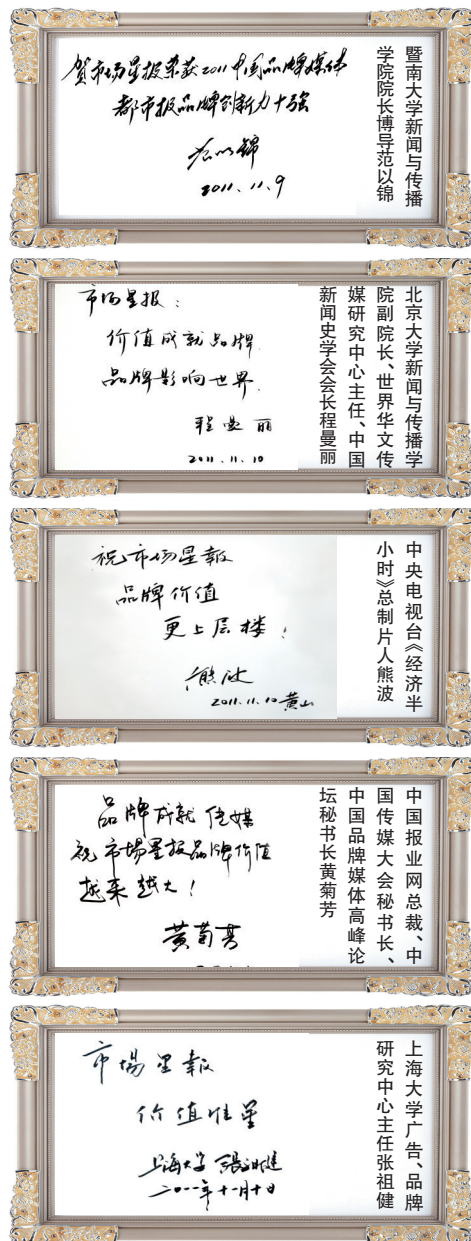 贺市场星报荣获2011中国品牌媒体
都市报品牌创新力十强
范以锦
2011.11.9
暨南大学新闻与传播
学院院长博导范以锦
市场星报：
价值成就品牌
品牌影响世界
程曼丽
2011.11.10
北京大学新闻与传播学
院副院长、世界华文传
媒研究中心主任、中国
新闻史学会会长程曼丽
祝市场星報
品牌价值
更上层楼！
熊波
2011.11.10黄山
中央电视台《经济半
小时》总制片人熊波
品牌成就传媒
祝市场星报品牌价值
越来越大！
黄菊芳
中国报业网总裁、中
国传媒大会秘书长、
中国品牌媒体高峰论
坛秘书长黄菊芳
市場星報
价值恒星
上海大学 張祖健
二〇一一年十一月十日
上海大学广告、品牌
研究中心主任张祖健